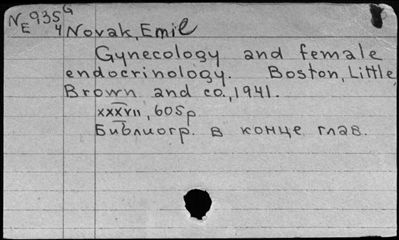 NE935G4
Novak, Emil
Gynecology and female
endocrinology. Boston, Little
Brown and co., 1941.
xxxvii, 605p
Библиогр. в конце глав.